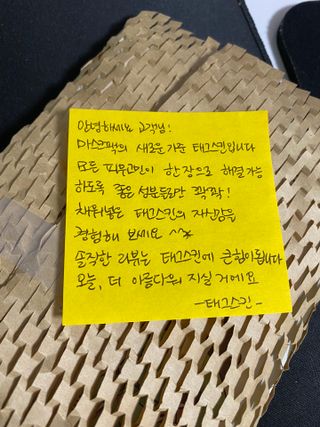 안녕하세요 고객님!
마스크팩의 새로운 기준 태그스킨입니다
모든 피부고민이 한장으로 해결가능
하도록 좋은 성분들로만 꽉꽉!
채워넣은 태그스킨의 자신감을
경험해 보세요 ^^*
솔직한 리뷰는 태그스킨에 큰힘이됩니다
오늘, 더 아름다워 지실 거에요
-태그스킨-